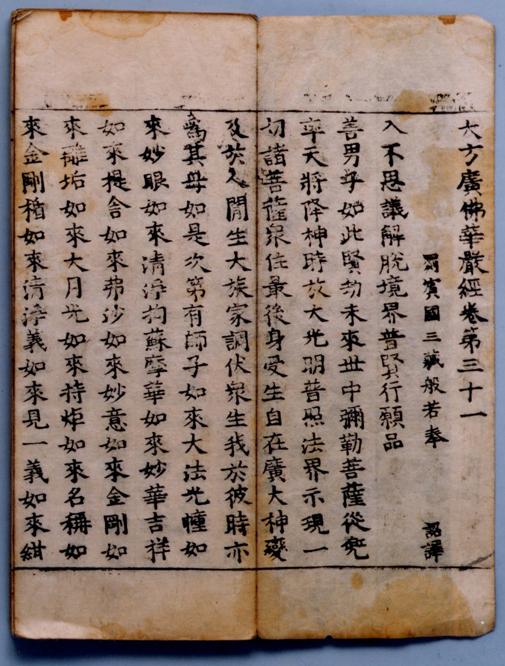 大方廣佛華嚴經卷第三十一
罽賓國三藏般若奉　詔譯
入不思議解脫境界普賢行願品
善男子如此賢劫未來世中彌勒菩薩從兜
率天將降神時放大光明普照法界示現一
切諸菩薩眾住最後身受生自在廣大神變
及於人閒生大族家調伏眾生我於彼時亦
為其母如是次第有師子如來大法光幢如
來妙眼如來清淨拘蘇摩華如來妙華吉祥
如來提舍如來弗沙如來妙意如來金剛如
來離垢如來大月光如來持炬如來名稱如
來金剛楯如來清淨義如來見一義如來紺